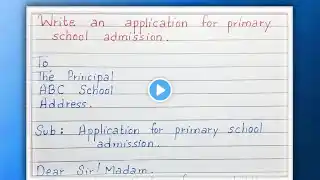 Write an application for primary
school admission.
To
The Principal
ABC School
Address.
Sub: Application for primary school
admission.
Dear Sir/Madam.